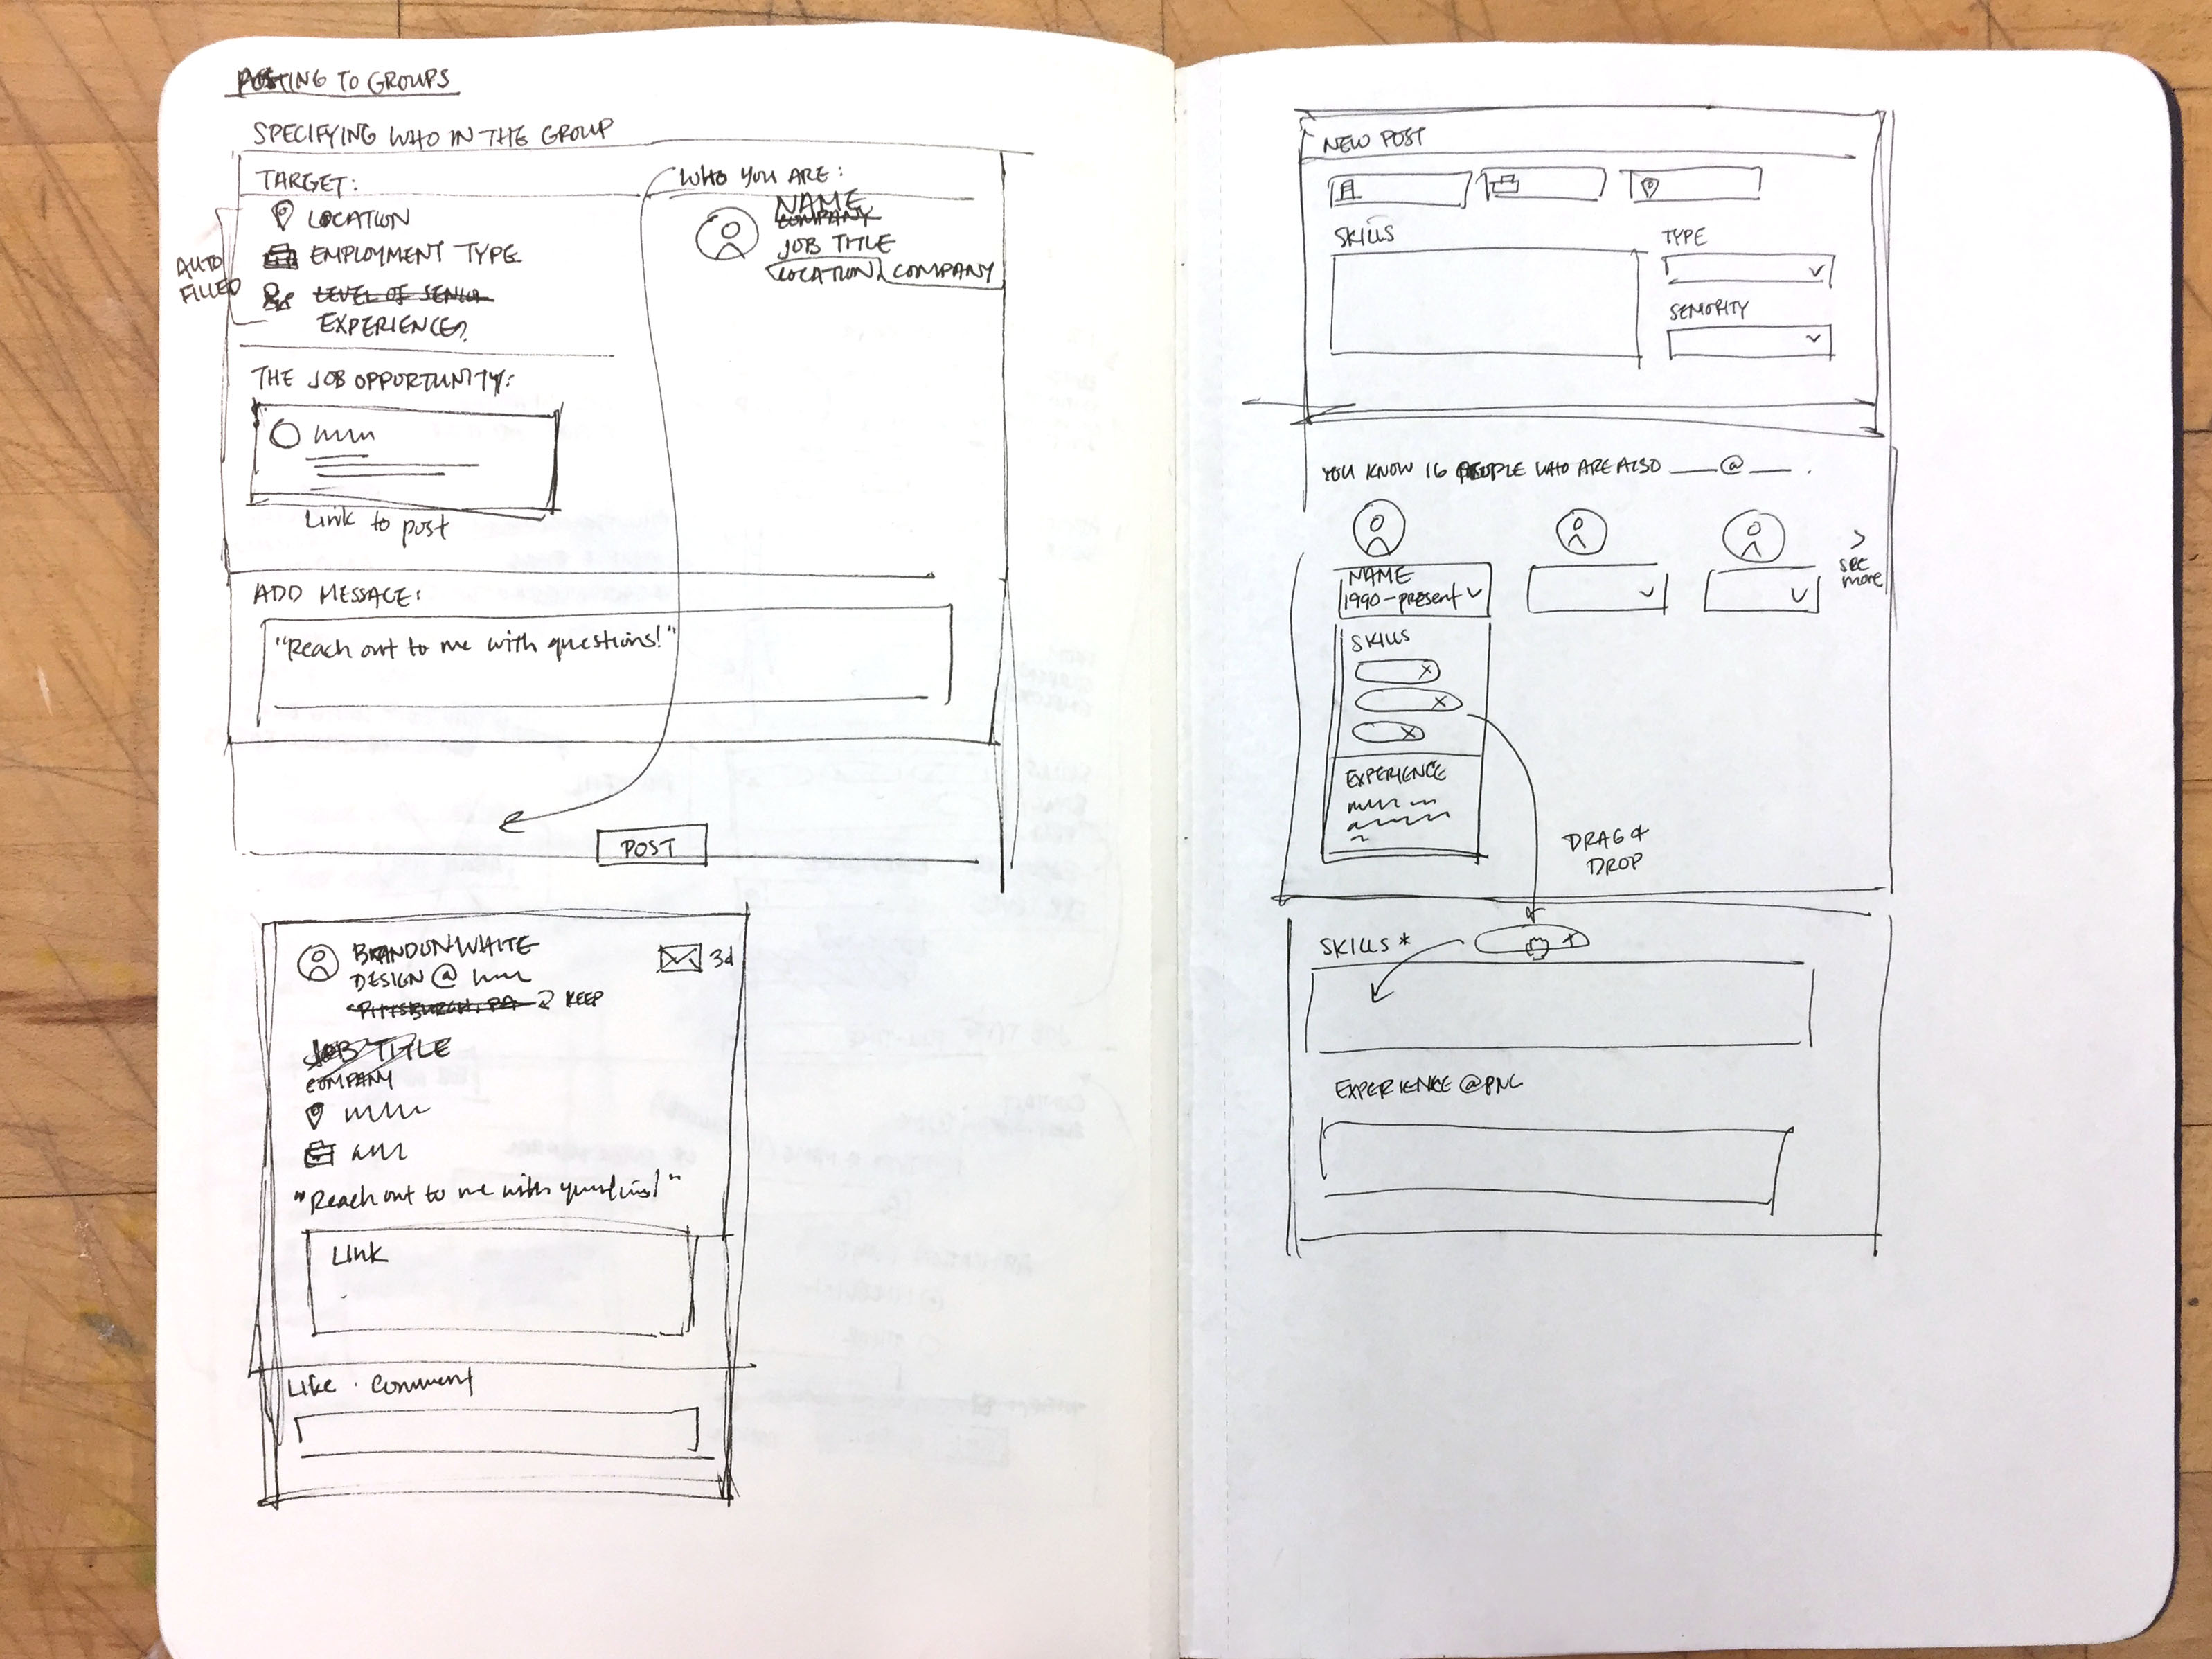 POSTING TO GROUPS
SPECIFYING WHO IN THE GROUP
TARGET:
LOCATION
EMPLOYMENT TYPE
LEVEL OF SENIOR
EXPERIENCE?
AUTO
FILLED
WHO YOU ARE:
NAME
COMPANY
JOB TITLE
LOCATION COMPANY
THE JOB OPPORTUNITY:
Link to post
ADD MESSAGE:
"Reach out to me with questions!"
POST
BRANDON WHITE
DESIGN @
3d
PITTSBURGH, PA KEEP
JOB TITLE
COMPANY
"Reach out to me with questions!"
Link
Like · Comment
NEW POST
SKILLS
TYPE
SENIORITY
YOU KNOW 16 PEOPLE WHO ARE ALSO ___ @ ___ .
NAME
1990-present
> see
more
SKILLS
X
X
X
EXPERIENCE
DRAG &
DROP
SKILLS *
X
EXPERIENCE @ PNC